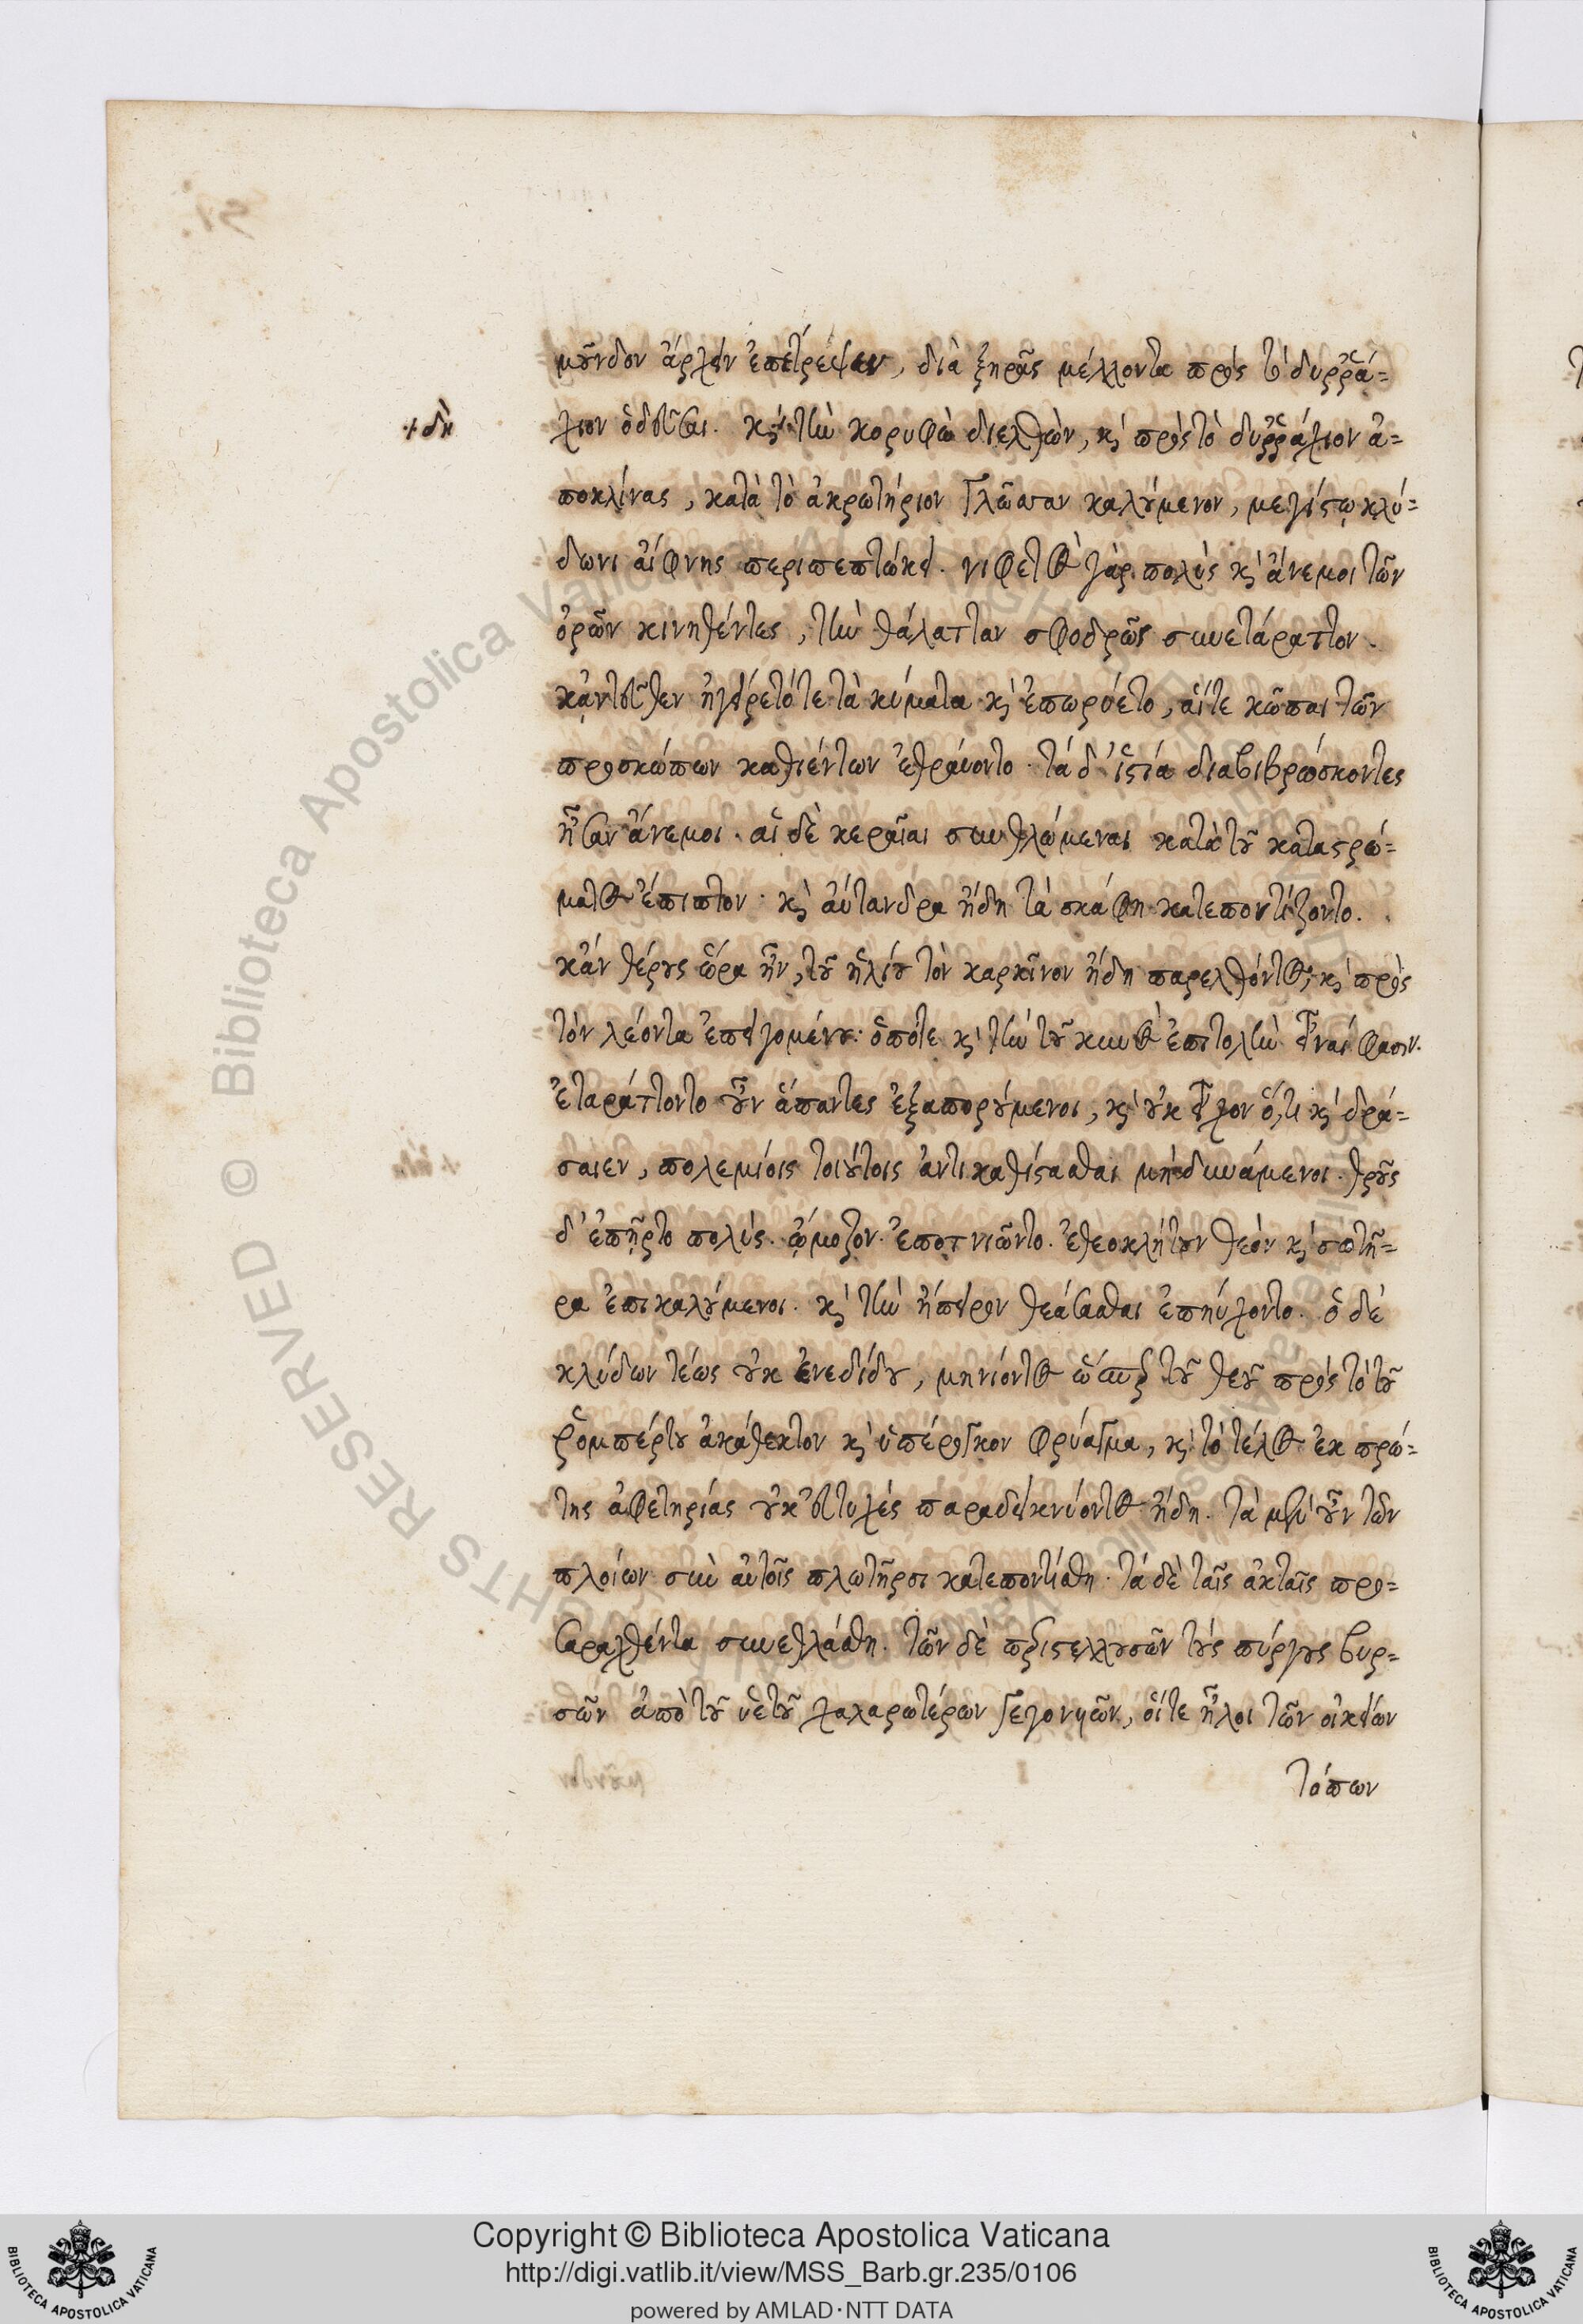 μοῦνδον ἄρχειν ἐπέτρεψεν, διὰ ξηρᾶς μέλλοντα πρὸς τὸ δυῤῥά=
·+ δὴ
χιον ὁδεῦσαι. καὶ·+ τὴν κορυφὼ διελθὼν, καὶ πρὸς τὸ δυῤῥάχιον ἀ=
ποκλίνας, κατὰ τὸ ἀκρωτήριον Γλῶσσαν καλούμενον, μεγίστῳ κλύ=
δωνι αἴφνης περιπεπτώκει. νιφετὸς γὰρ πολὺς καὶ ἄνεμοι τῶν
ὀρῶν κινηθέντες, τὴν θάλατταν σφοδρῶς συνετάραττον.
κᾀντεῦθεν ἠγείρετό τε τὰ κύματα καὶ ἐπωρύετο, αἵ τε κῶπαι τῶν
προσκώπων καθιέντων ἐθραύοντο. τὰ δ' ἱστία διαβιβρώσκοντες
ἦσαν ἄνεμοι. αἱ δὲ κεραῖαι συνθλώμεναι κατὰ τοῦ καταστρώ=
ματος ἔπιπτον· καὶ αὔτανδρα ἤδη τὰ σκάφη κατεποντίζοντο.
κἂν θέρους ὥρα ἦν, τοῦ ἡλίου τὸν καρκῖνον ἤδη παρελθόντος, καὶ πρὸς
τὸν λέοντα ἐπειγομένου· ὁπότε καὶ τὴν τοῦ κυνὸς ἐπιτολὴν εἶναί φασιν.
ἐταράττοντο οὖν ἅπαντες ἐξαπορούμενοι, καὶ οὐκ εἶχον ὅ,τι καὶ δρά=
σαιεν, πολεμίοις τοιούτοις ἀντικαθίστασθαι μὴ δυνάμενοι. θροῦς
δ' ἐπῇρτο πολύς. ᾤμωζον. ἐποτνιῶντο. ἐθεοκλήτουν θεὸν καὶ σωτῆ=
ρα ἐπικαλούμενοι. καὶ τὴν ἤπειρον θεάσασθαι ἐπηύχοντο. ὁ δὲ
κλύδων τέως οὐκ ἐνεδίδου, μηνίοντος ὥσπερ τοῦ θεοῦ πρὸς τὸ τοῦ
Ῥομπέρτου ἀκάθεκτον καὶ ὑπέρογκον φρύαγμα, καὶ τὸ τέλος ἐκ πρώ=
της ἀφετηρίας οὐκ εὐτυχὲς παραδεικνύοντος ἤδη. τὰ μὲν οὖν τῶν
πλοίων σὺν αὐτοῖς πλωτῆρσι κατεποντίσθη. τὰ δὲ ταῖς ἀκταῖς προ=
σαραχθέντα συνεθλάσθη. τῶν δὲ περιστελλουσῶν τοὺς πύργους βυρ=
σῶν ἀπὸ τοῦ ὑετοῦ χαλαρωτέρων γεγονυιῶν, οἵ τε ἧλοι τῶν οἰκείων
τόπων
Copyright © Biblioteca Apostolica Vaticana
http://digi.vatlib.it/view/MSS_Barb.gr.235/0106
powered by AMLAD·NTT DATA